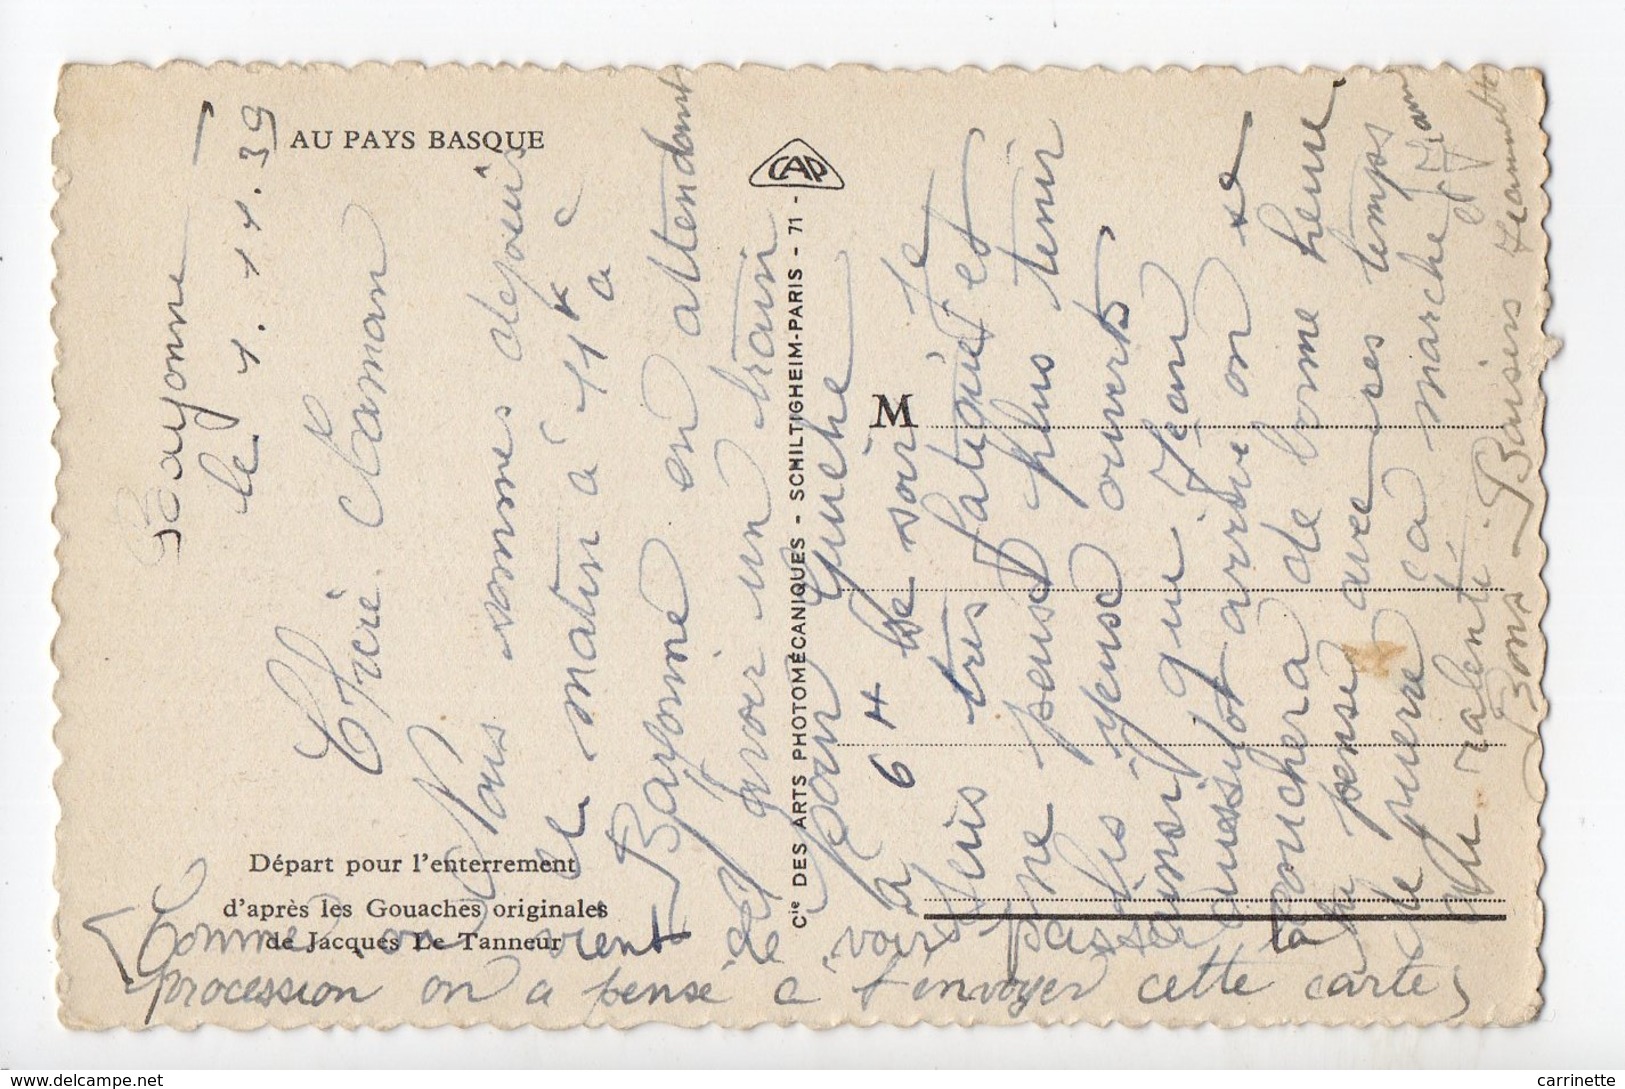 AU PAYS BASQUE
Départ pour l'enterrement
d'après les Gouaches originales
de Jacques Le Tanneur
CAP
Cie DES ARTS PHOTOMÉCANIQUES - SCHILTIGHEIM-PARIS - 71 -
M
Bayonne
le 4.11.39
Chère Maman
Nous sommes depuis
ce matin à 11h à
Bayonne en attendant
d'avoir un train
pour Guiche
à 6 H ce soir. Je
suis très fatigué et
ne peus plus tenir
lis yeuse ouverts
ainsi que Jean
aussitot arrivé on se
couchera de bonne heure
tu pense avec ses temps
de pierre ça marche
au ralenti. Baisers
Bons
et Jean
Jeannette
Comme on vient de voir passer la
procession on a pensé a t'envoyer cette carte
carrinette